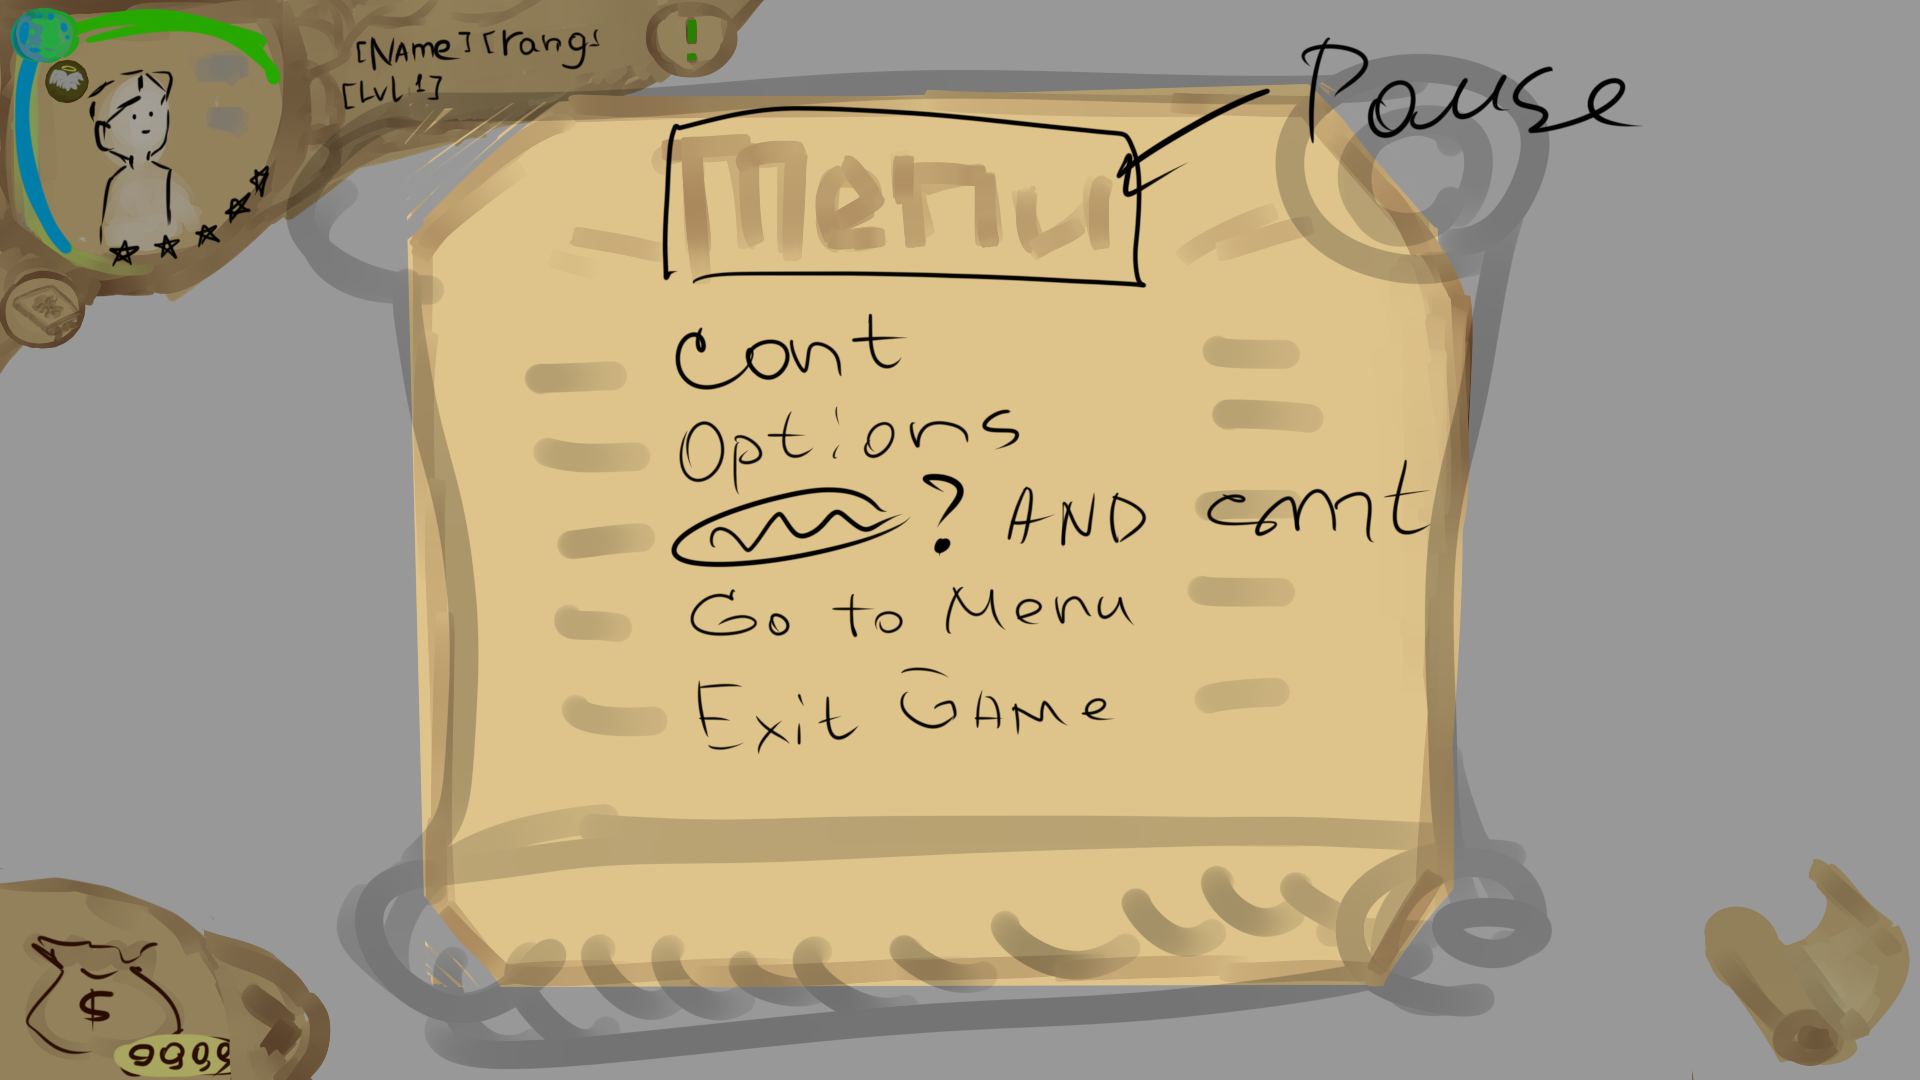 [Name] [rang]
[Lvl 1]
!
Pause
Menu
Cont
Options
? AND cont
Go to Menu
Exit GAMe
$
9999